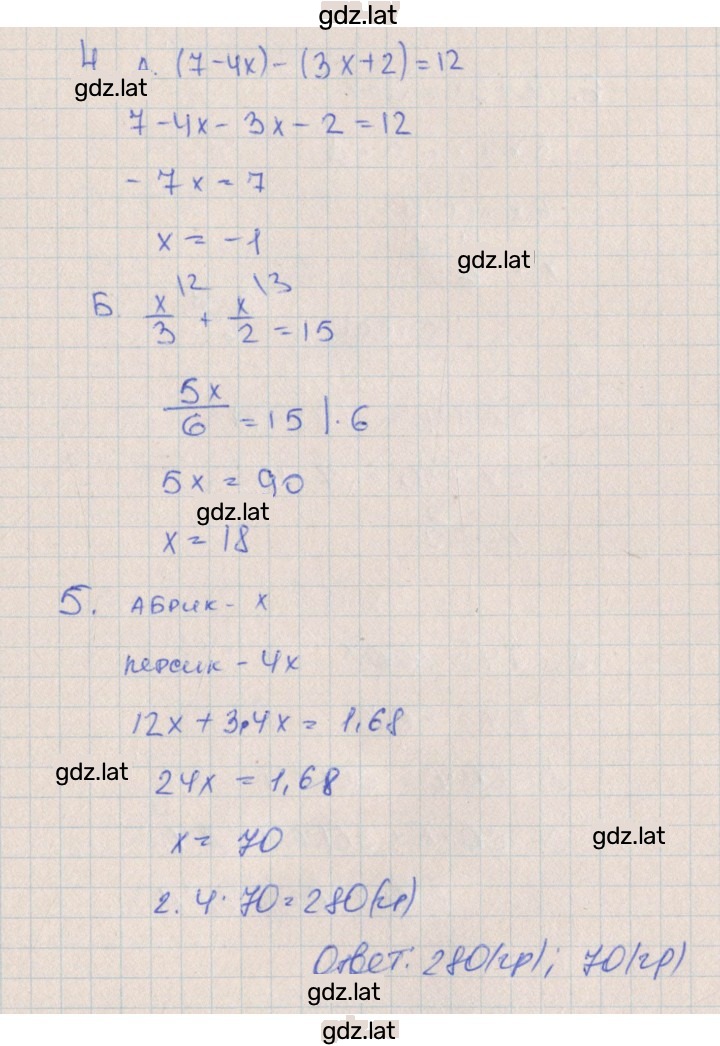 gdz.lat
4 А. (7-4x)-(3x+2)=12
gdz.lat
7-4x-3x-2=12
-7x=7
x=-1
gdz.lat
Б. x/3 \2 + x/2 \3 =15
5x/6 =15 |·6
5x=90
gdz.lat
x=18
5. Абрик- x
персик-4x
12x+3·4x=1,68
gdz.lat
24x=1,68
x=70
gdz.lat
2. 4·70=280(гр)
Ответ: 280(гр); 70(гр)
gdz.lat
gdz.lat